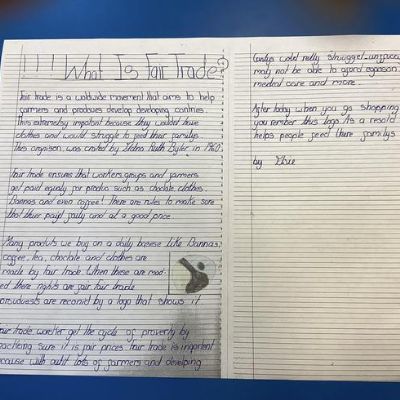 What Is Fair Trade
Fair trade is a worldwide movement that aims to help
farmers and produces develop developing contries.
This extremetly important because they wouldnt have
clothes and would struggle to feed their familys
This organison was created by Edna Ruth Byler in 1960.
Fair trade ensures that workers groups and farmers
get paid equaly for producs such as choclate clothes
Bannas and even coffee! There are rules to make sure
that their paid faily and at a good price.
Many produts we buy on a daily basise like Bannas
coffee, tea, choclate and clothes are
made by fair trade When these are mad
ed there rights are fair fair trade
produests are reconid by a logo that shows it
Fair trade worker get the cycle of proverty by
practicing sure it is fair prices fair trade is important
because with outit lots of farmers and develping
familys wold relly struggel
may not be able to afford
medical care and more.
After today when you go shopping
you rember this logo As a resold
helps people feed there familys
by